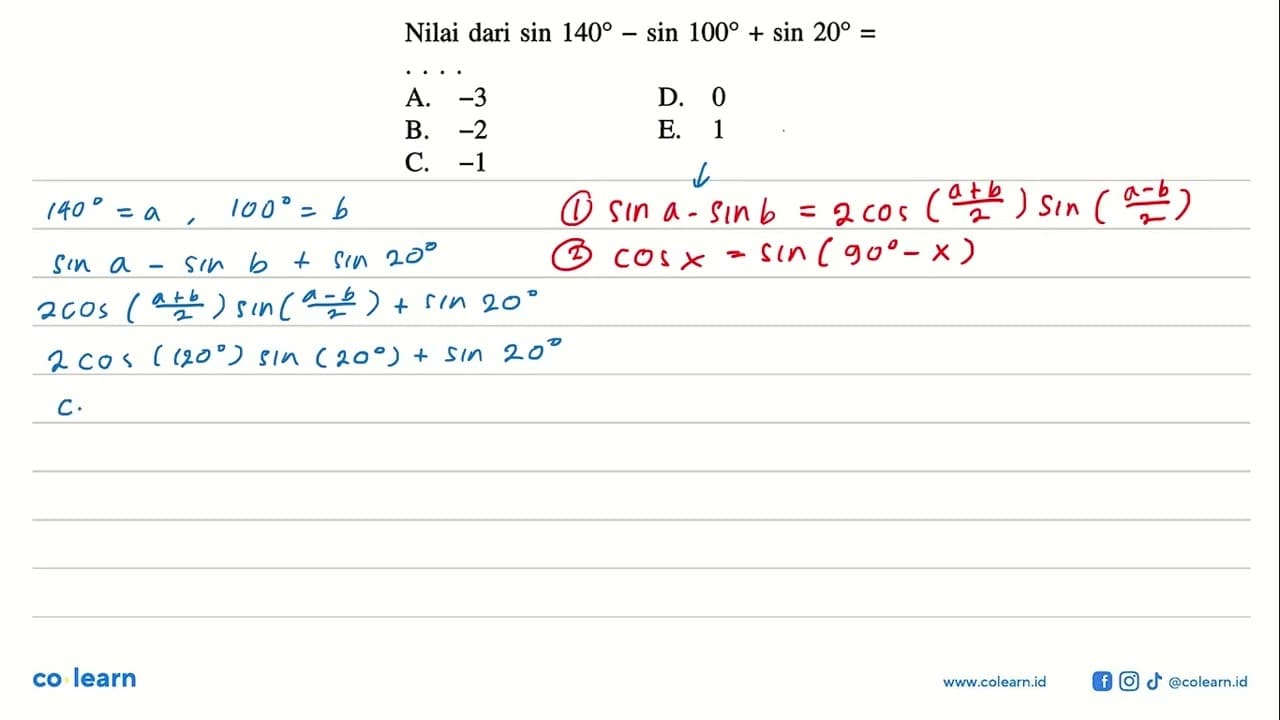 Nilai dari sin 140° − sin 100° + sin 20° =
. . . .
A. −3
B. −2
C. −1
D. 0
E. 1
140° = a , 100° = b
sin a - sin b + sin 20°
2cos (a+b/2) sin (a-b/2) + sin 20°
2 cos (120°) sin (20°) + sin 20°
c.
↓
① sin a - sin b = 2 cos (a+b/2) sin (a-b/2)
② cos x = sin (90° - x)
co learn
www.colearn.id
@colearn.id